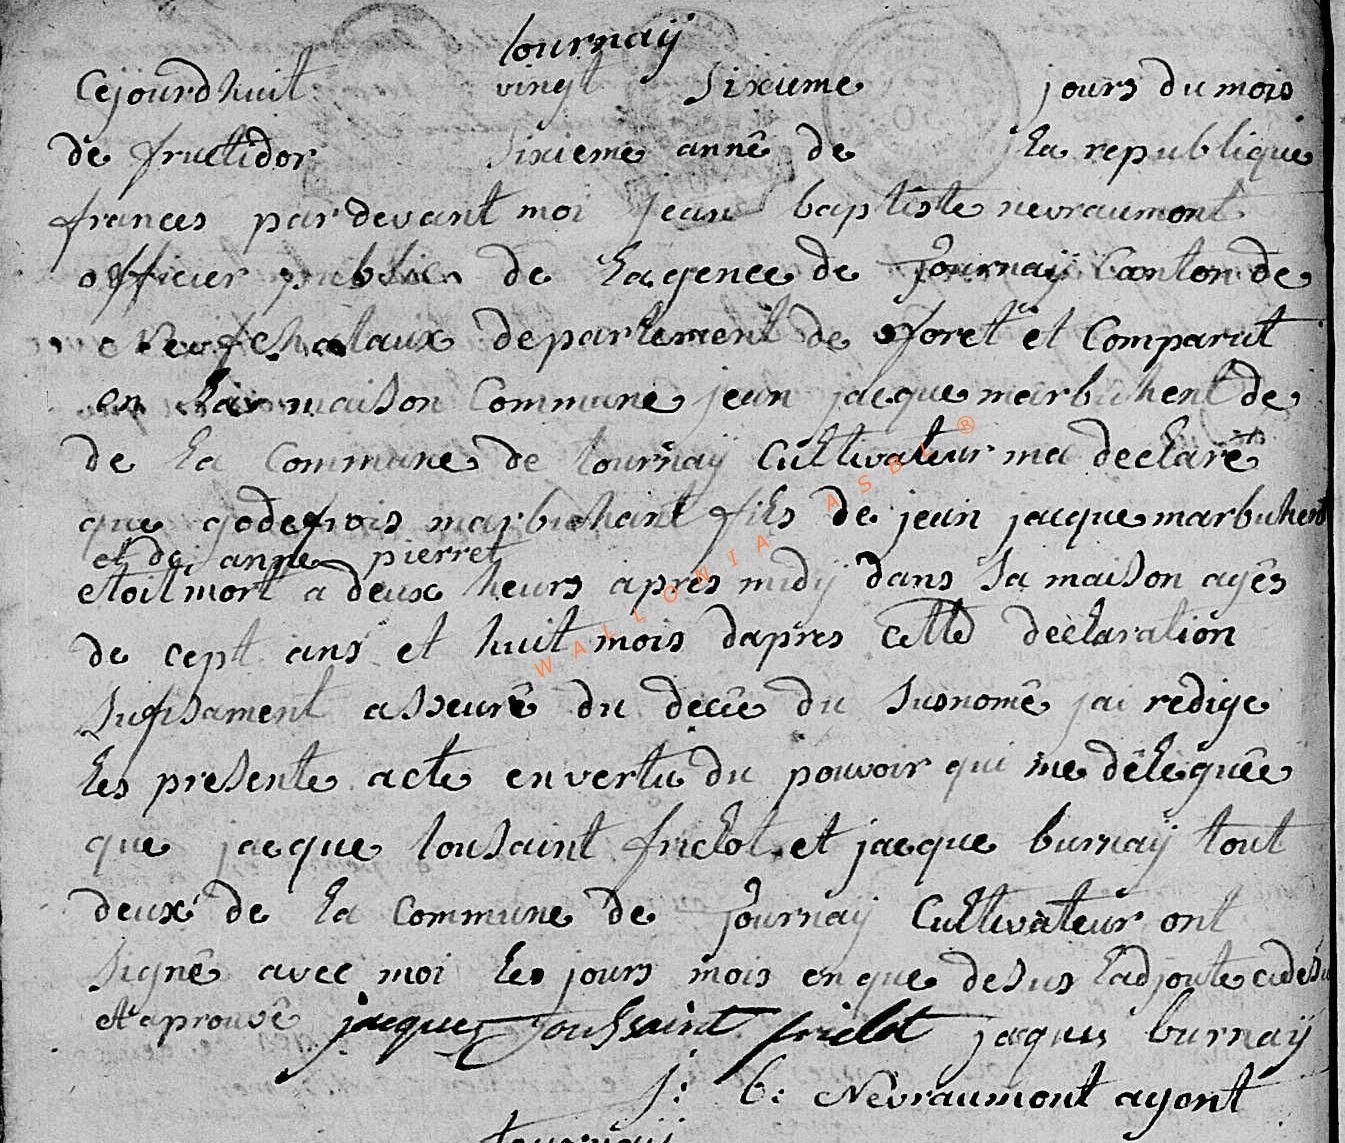 tournaÿ
Cejourdhuit vingt sixieme jours du mois
de fructidor sixieme annê de la republique
frances pardevant moi jean baptiste nevraumont
officier publicn de lagence de tournaÿ Canton de
Neufchataux departement de foret et Comparut
en lair maison Commune jean jacque marbuhent de
de la Commune de tournaÿ Cultivateur ma declarê
que godefrois marbuhant fils de jean jacque marbuhent
et de anne pierret
etoit mort a deux heurs apres midÿ dans sa maison agês
de cept ans et huit mois dapres cette declaration
sufisament asseurê du decêe du susnomê jai redige
les presente acte en vertu du pouvoir qui me dêleguêe
que jacque tousaint frictot et jacque burnaÿ tout
deux de la Commune de tournaÿ Cultivateur ont
signê avec moi les jours mois en que desus ladjoute cidesu
et aprouvê jacque toussaint frictot jaques burnaÿ
j: b: Nevraumont agent
tournaÿ
WALLONIA ASBL ®